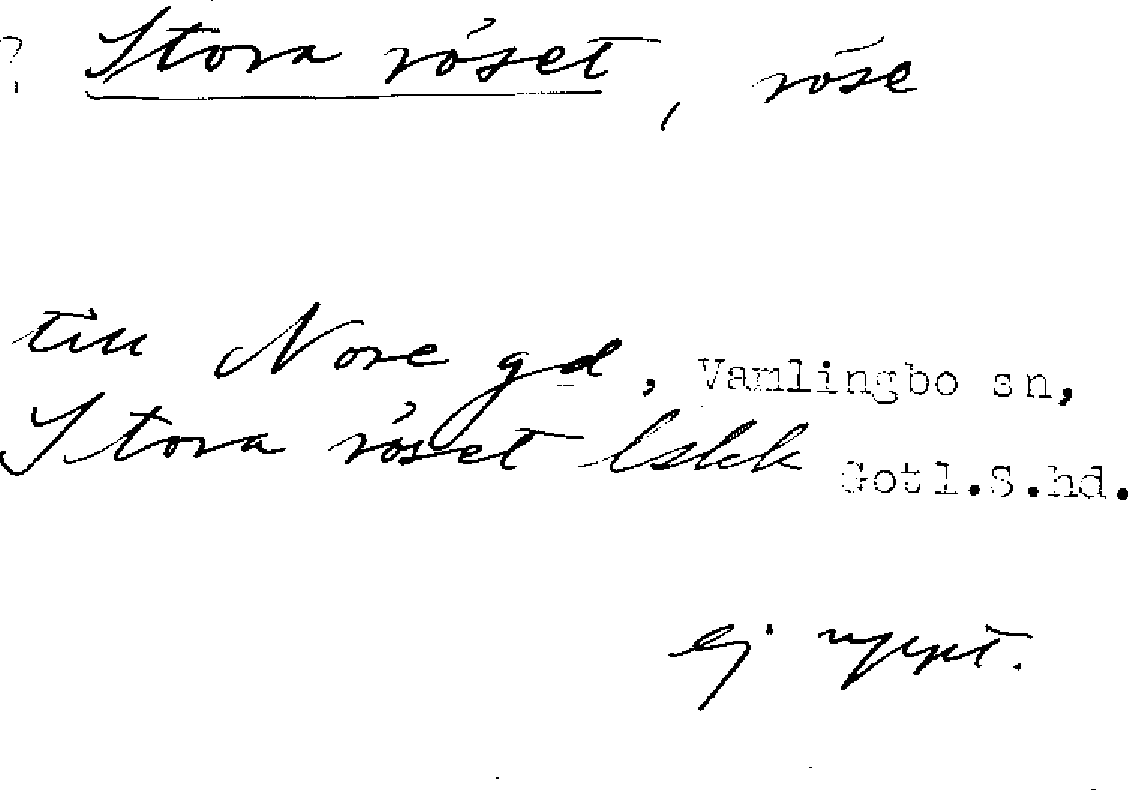 ? Stora röset, röse
till Nore gd, Vamlingbo sn,
Stora röset lskk Gotl.S.hd.
ej uppt.